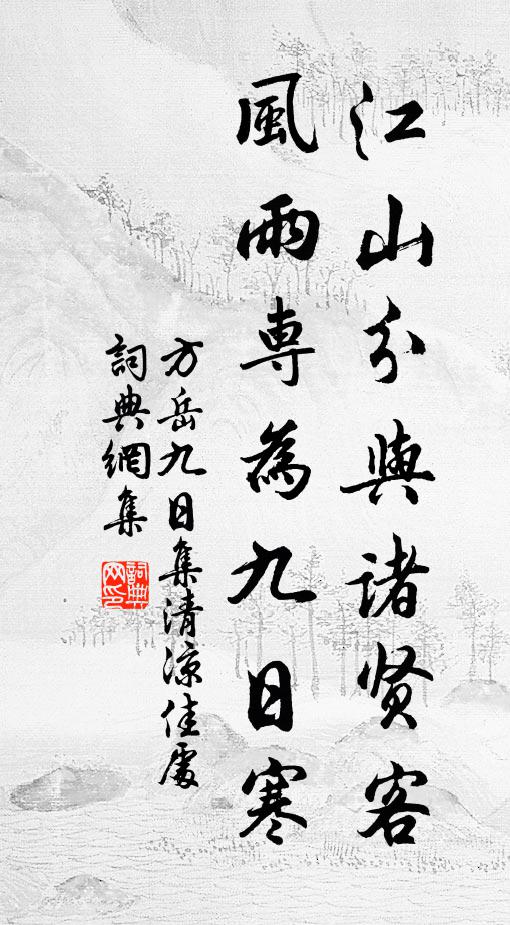 江山分與诸贤客
風雨専為九日寒
方岳九日集清涼佳處
詞典網集
詞典网印